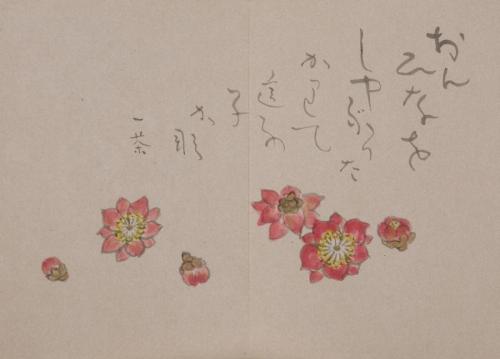 おん
ひなを
しやぶりた
かりて
這ふ
子
か那
一茶